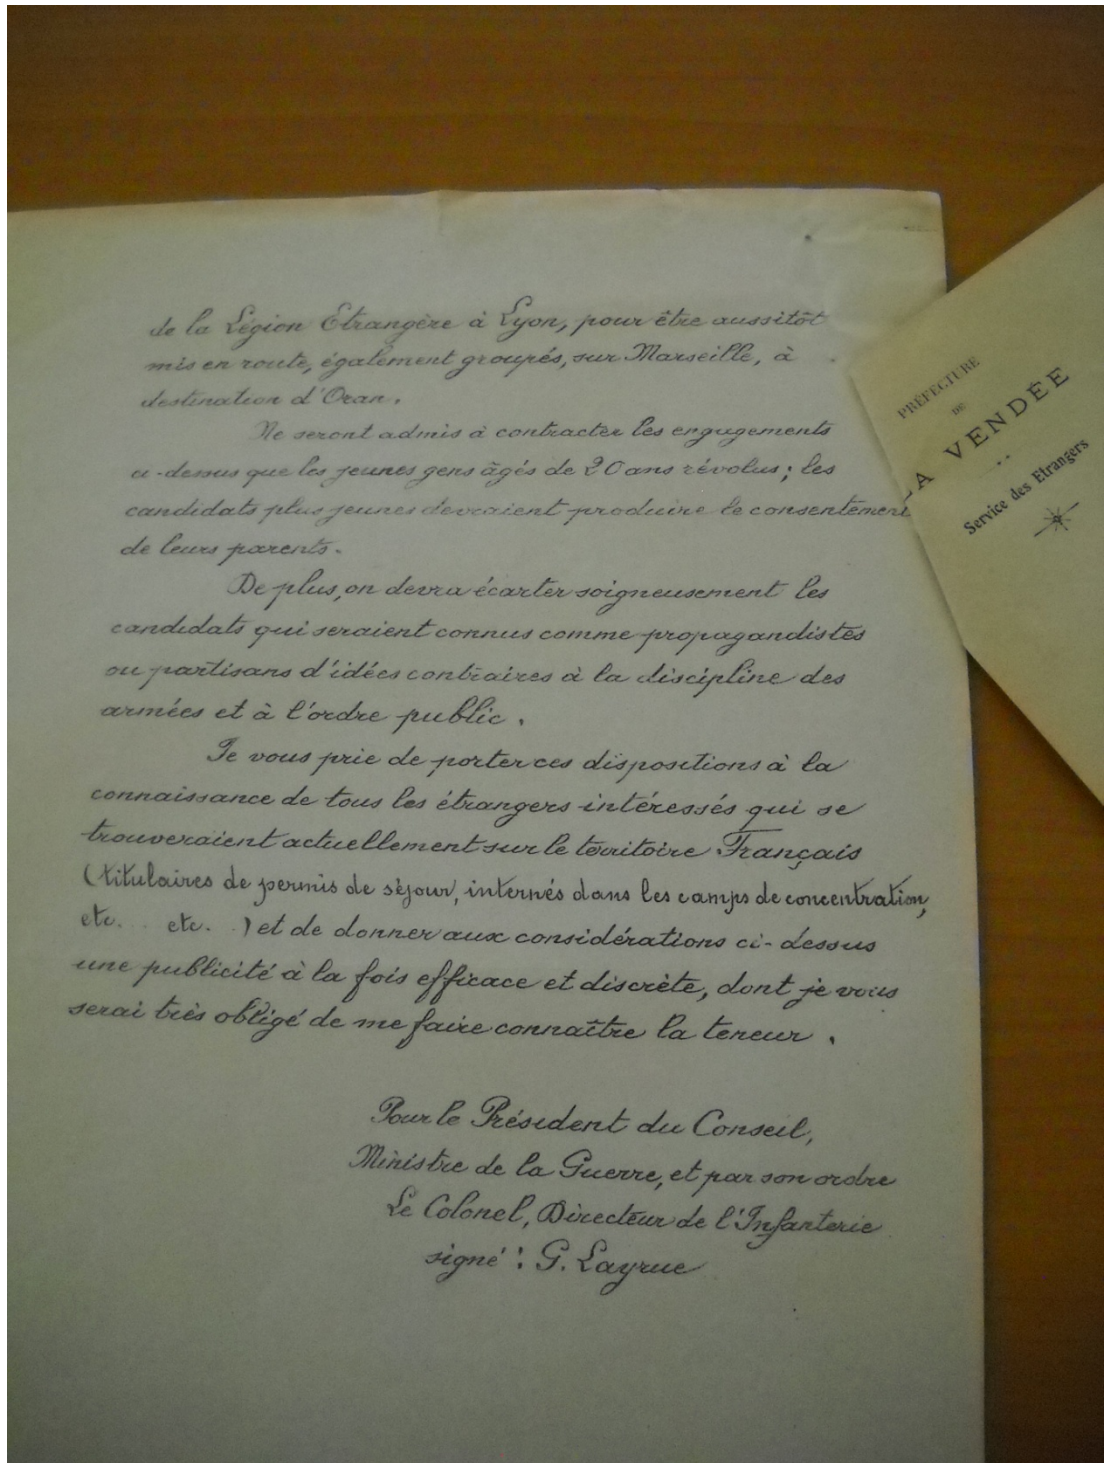 de la Légion Etrangère à Lyon, pour être aussitôt
mis en route, également groupés, sur Marseille, à
destination d'Oran.
Ne seront admis à contracter les engagements
ci-dessus que les jeunes gens âgés de 20 ans révolus ; les
candidats plus jeunes devraient produire le consentement
de leurs parents.
De plus, on devra écarter soigneusement les
candidats qui seraient connus comme propagandistes
ou partisans d'idées contraires à la discipline des
armées et à l'ordre public.
Je vous prie de porter ces dispositions à la
connaissance de tous les étrangers intéressés qui se
trouveraient actuellement sur le territoire Français
(titulaires de permis de séjour, internés dans les camps de concentration,
etc. . etc. . ) et de donner aux considérations ci-dessus
une publicité à la fois efficace et discrète, dont je vous
serai très obligé de me faire connaître la teneur.
Pour le Président du Conseil,
Ministre de la Guerre, et par son ordre
Le Colonel, Directeur de l'Infanterie
signé : G. Layrue
PRÉFECTURE
DE
LA VENDÉE
Service des Etrangers